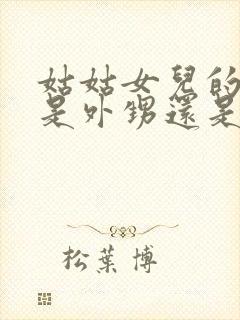 姑姑女兒的
是外甥還是
松葉博